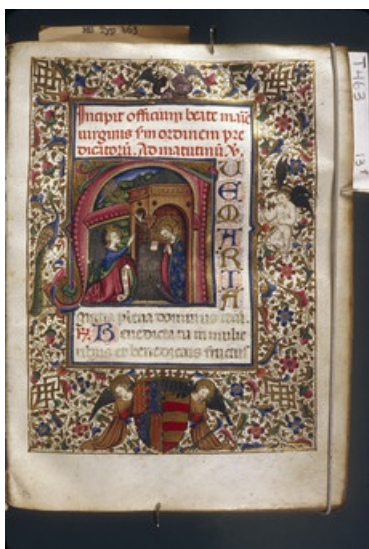 MS Typ 463
T463
Incipit officiuʒ beate marie
uirginis ordinem pre
dicatorū. Ad matutinū. ℣.
A
UE MARIA
gratia plena dominus tecū.
℟. Benedicta tu in mulie
ribus et benedictus fructus